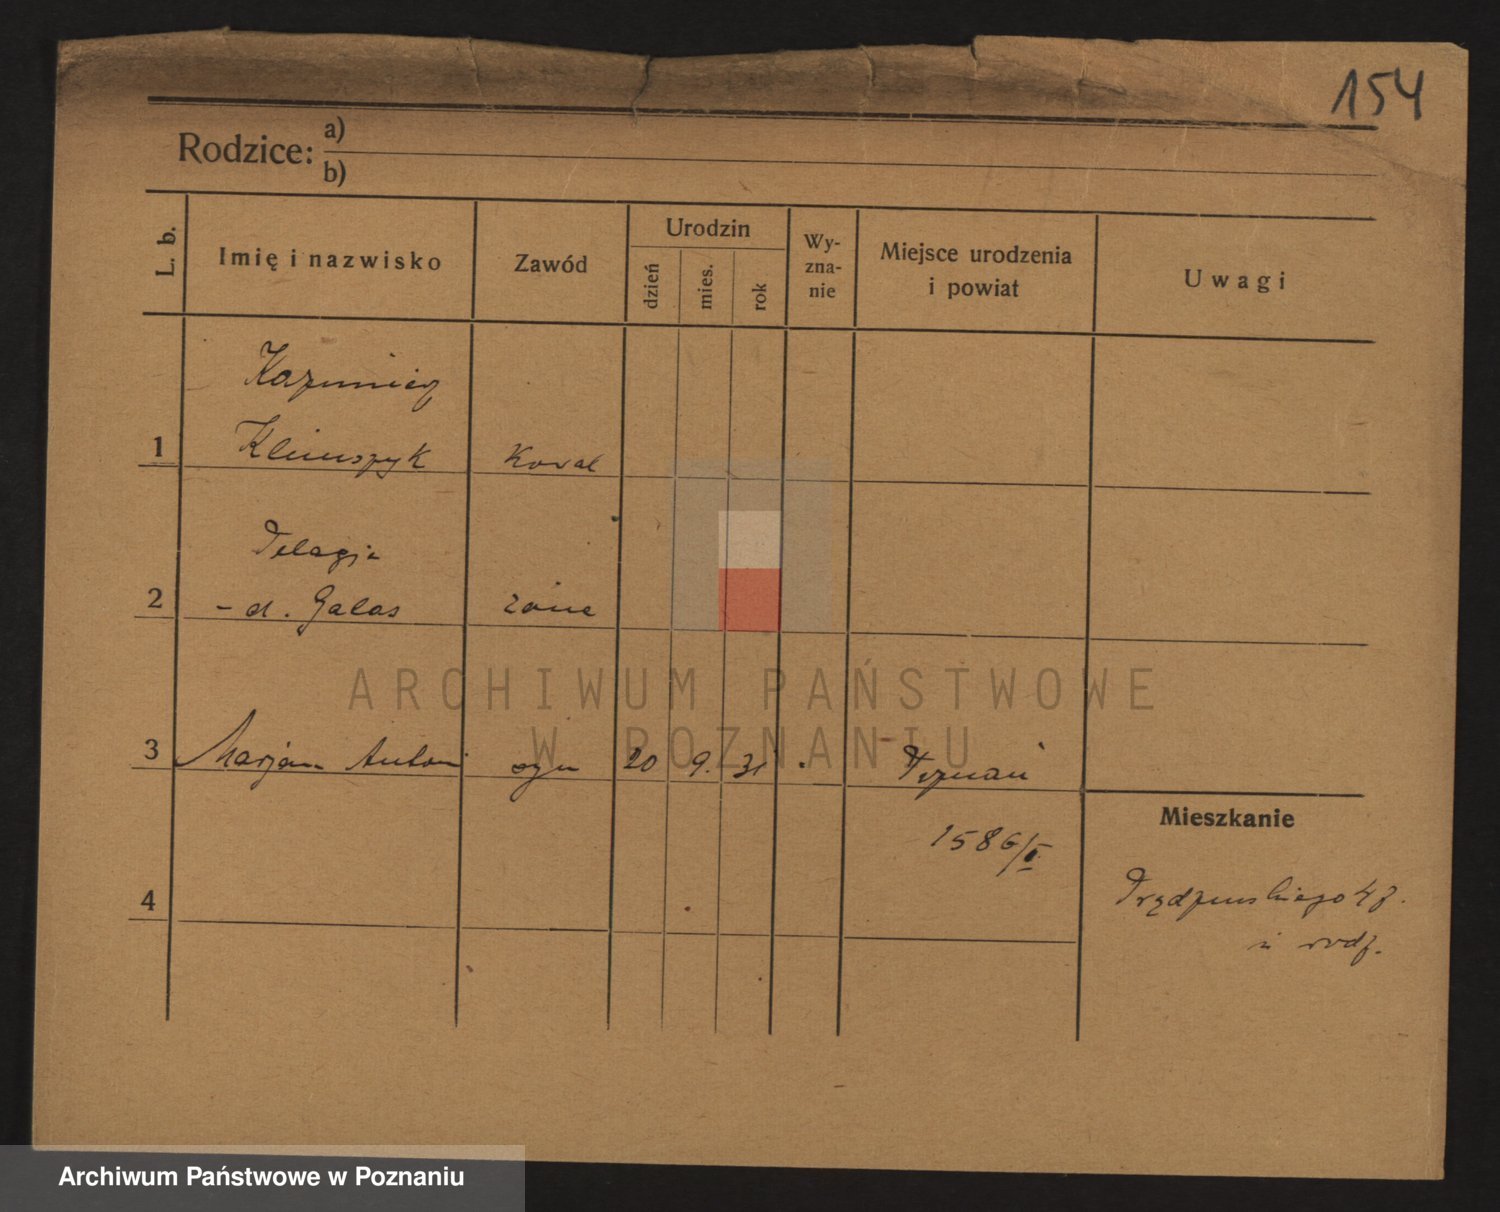 154
Rodzice: a)
b)
L. b.
Imię i nazwisko
Zawód
Urodzin
dzień
mies.
rok
Wy-
zna-
nie
Miejsce urodzenia
i powiat
Uwagi
Kazimierz
1 Klimszyk Koval
Pelagja
2 - d. Galas żona
3 Marjan Antoni syn 20 9. 31 Poznań
Mieszkanie
1586/II
4
u rodz.
ARCHIWUM PAŃSTWOWE
W POZNANIU
Archiwum Państwowe w Poznaniu